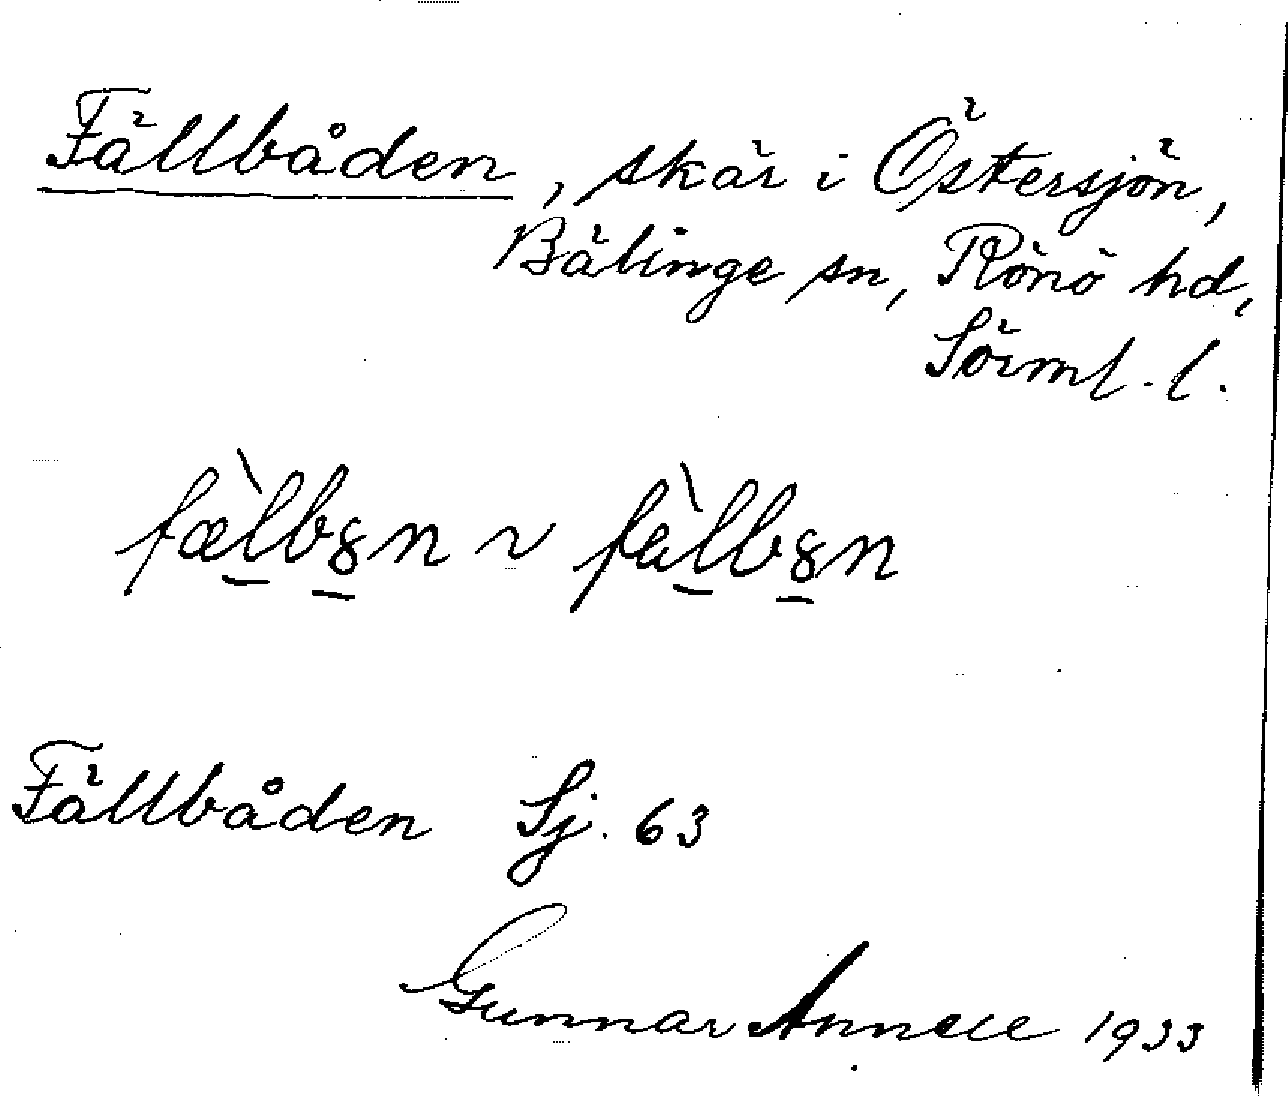 Fällbåden, skär i Östersjön,
Bälinge sn, Rönö hd,
Sörml. l.
fæ̀lb8n ~ fàlb8n
Fällbåden Sj. 63
Gunnar Annell 1933